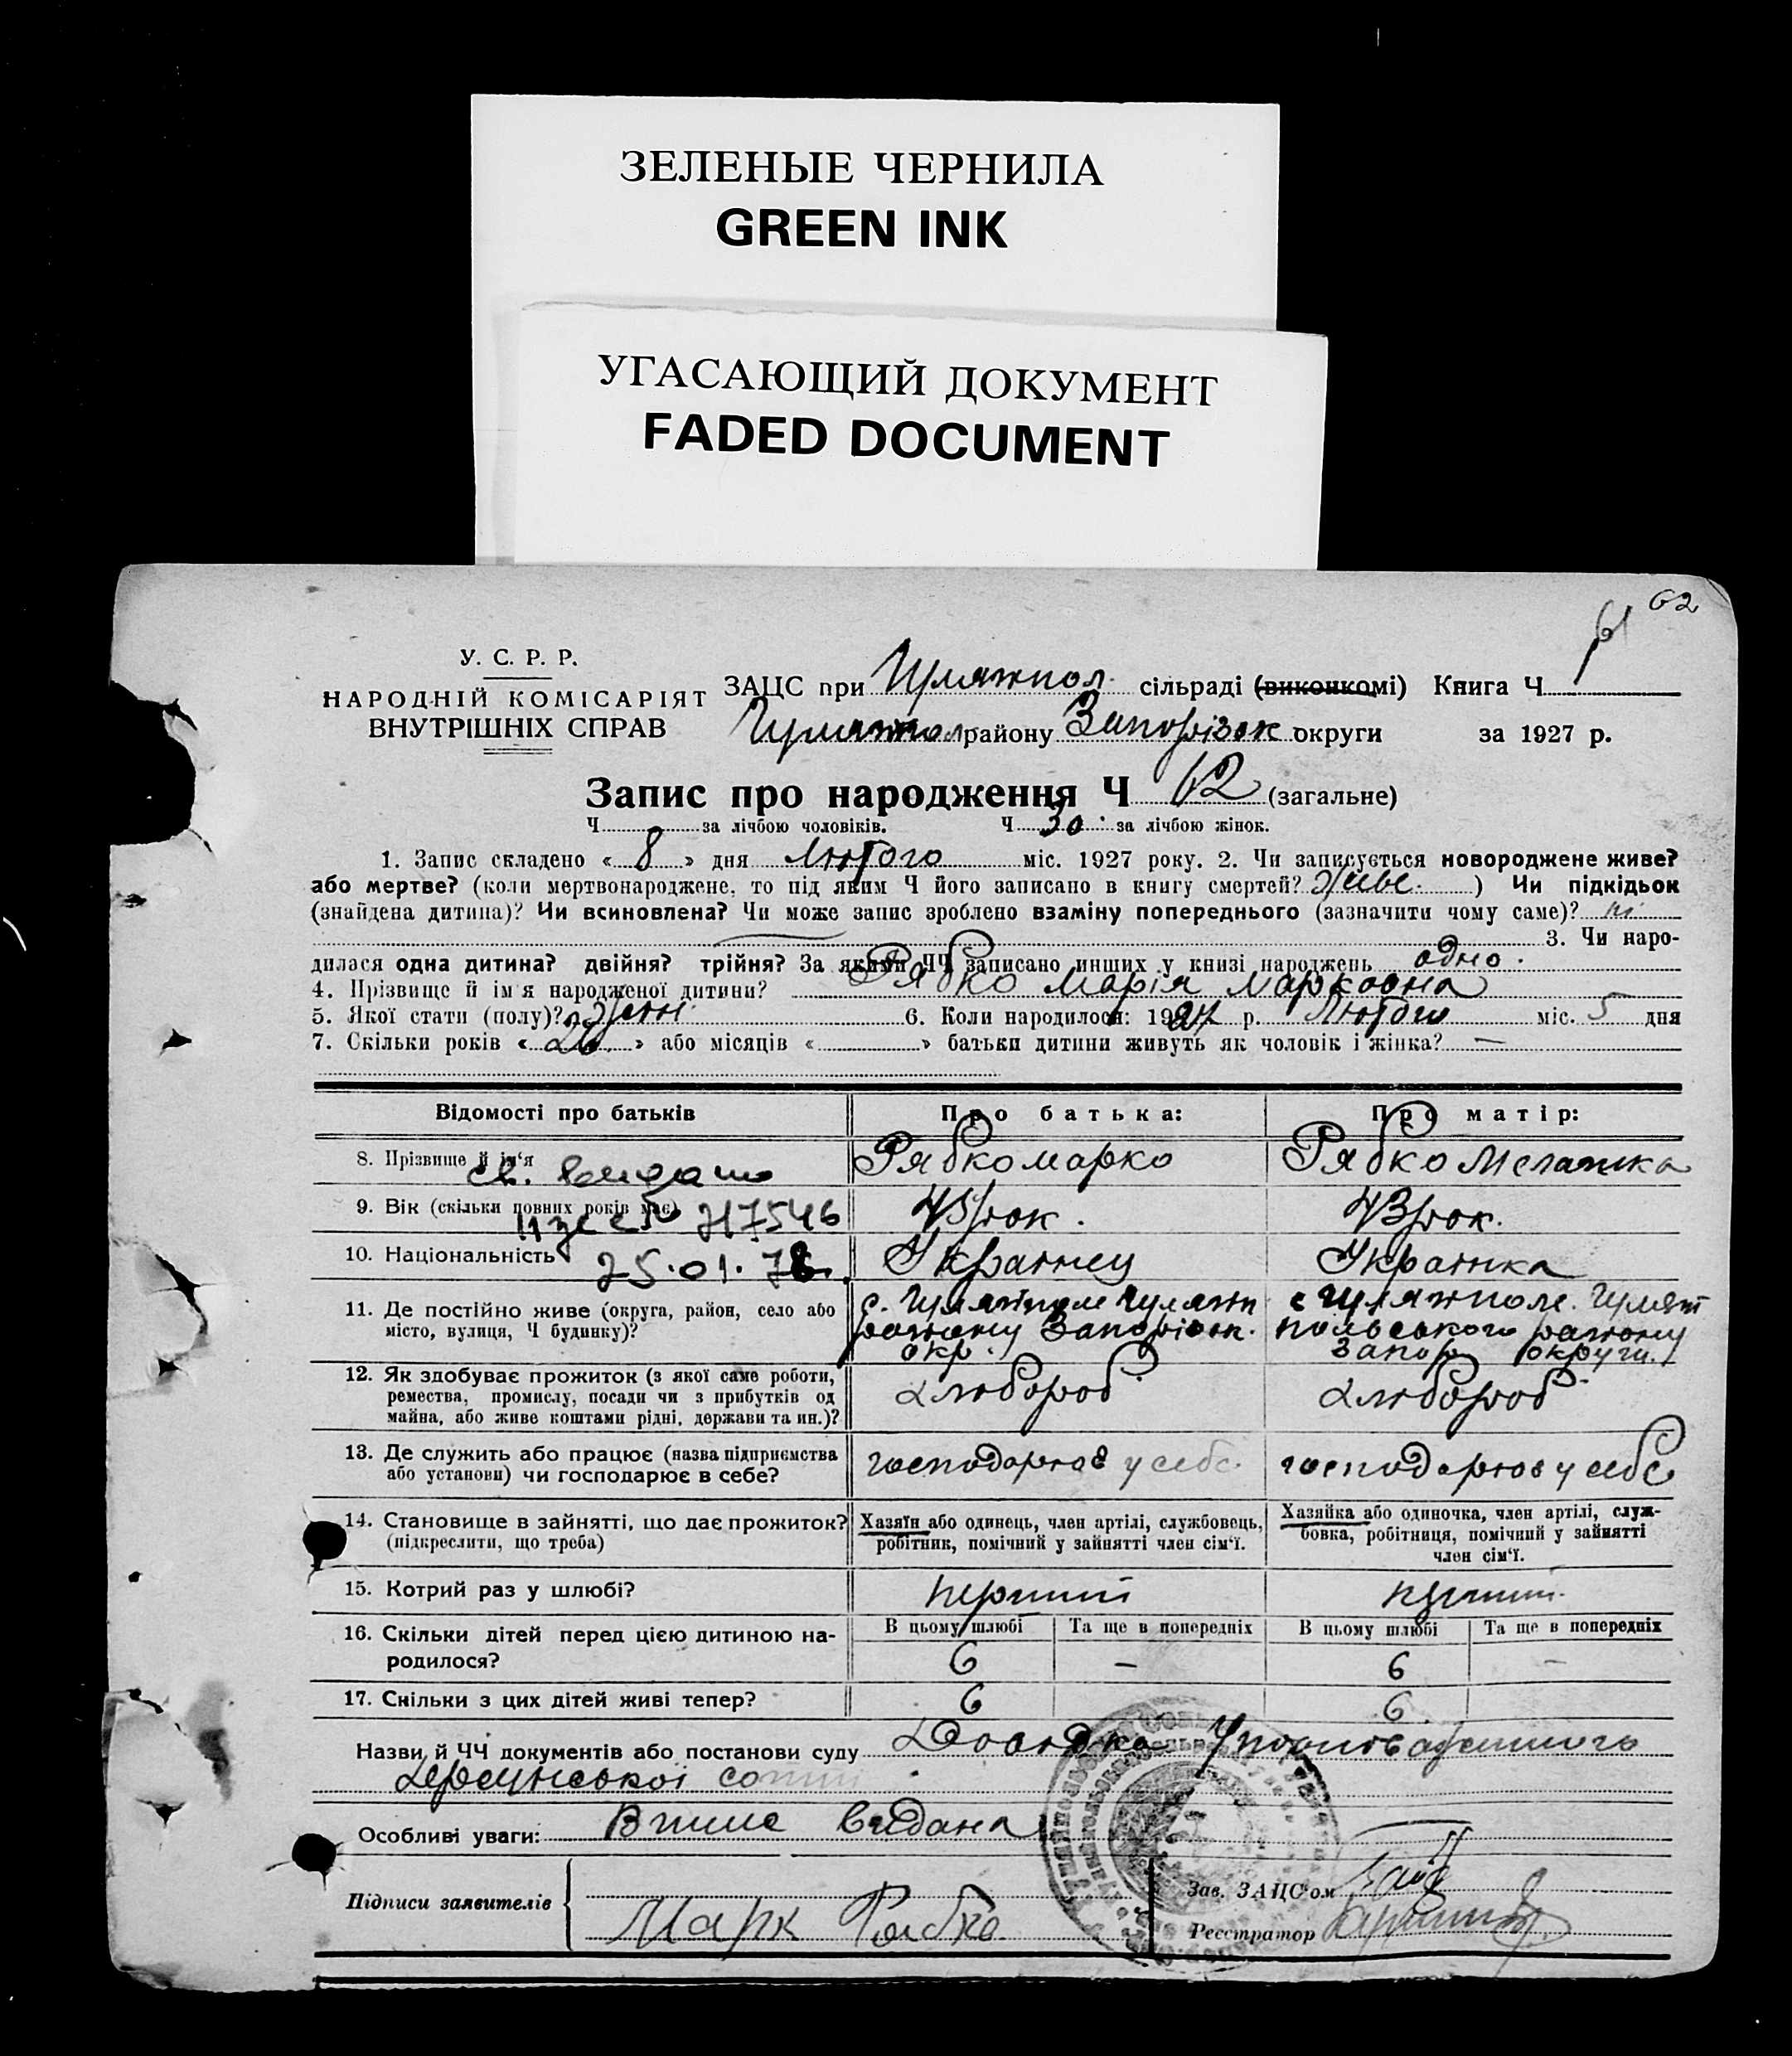 ЗЕЛЕНЫЕ ЧЕРНИЛА
GREEN INK
УГАСАЮЩИЙ ДОКУМЕНТ
FADED DOCUMENT
62
61
У. С. Р. Р.
НАРОДНІЙ КОМІСАРІЯТ
ВНУТРІШНІХ СПРАВ
ЗАЦС при Гуляжпол. сільраді (виконкомі) Книга Ч
Гуляжпол району Запорізок округи за 1927 р.
Запис про народження Ч 62 (загальне)
Ч за лічбою чоловіків. Ч 30. за лічбою жінок.
1. Запис складено « 8 » дня Лютого міс. 1927 року. 2. Чи записується новороджене живе?
або мертве? (коли мертвонароджене, то під яким Ч його записано в книгу смертей? живе. ) Чи підкідьок
(знайдена дитина)? Чи всиновлена? Чи може запис зроблено взаміну попереднього (зазначити чому саме)? ні
3. Чи наро-
дилася одна дитина? двійня? трійня? За якими ЧЧ записано инших у книзі народжень одно.
4. Прізвище й ім'я народженої дитини? Рябко Марія Марковна
5. Якої стати (полу)? Жен. 6. Коли народилося: 1927 р. Лютого міс. 5 дня
7. Скільки років « 26 » або місяців « » батьки дитини живуть як чоловік і жінка? —
Відомості про батьків Про батька: Про матір:
8. Прізвище й ім'я Рябко Марко Рябко Мелашка
св. видано
9. Вік (скільки повних років має) 43 рок. 43 рок.
717546
10. Національність Українец Українка
25.01.78
11. Де постійно живе (округа, район, село або
місто, вулиця, Ч будинку)?
с. Гуляйполе Гуляжп
району Запорізок.
окр.
с Гуляжполе. Гуляй
польського району
Запор округи.
12. Як здобуває прожиток (з якої саме роботи,
ремества, промислу, посади чи з прибутків од
майна, або живе коштами рідні, держави та ин.)?
хлібороб хлібороб
13. Де служить або працює (назва підприємства
або установи) чи господарює в себе?
господарює у себе. господарює у себе
14. Становище в зайнятті, що дає прожиток?
(підкреслити, що треба)
Хазяїн або одинець, член артілі, службовець,
робітник, помічний у зайнятті член сім'ї.
Хазяйка або одиночка, член артілі, служ-
бовка, робітниця, помічний у зайнятті
член сім'ї.
15. Котрий раз у шлюбі? перший перший
16. Скільки дітей перед цією дитиною на-
родилося?
В цьому шлюбі Та ще в попередніх В цьому шлюбі Та ще в попередніх
6 — 6 —
17. Скільки з цих дітей живі тепер? 6 6
Назви й ЧЧ документів або постанови суду Довідка Уповноваженного
Херсунської сотні
Особливі уваги: Впише видана
Підписи заявителів Марк Рябко
Зав. ЗАЦС'ом
Реєстратор